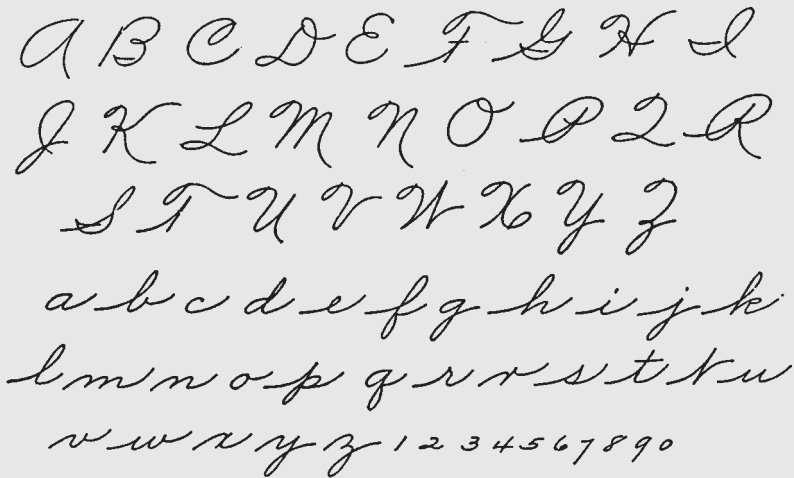 A B C D E F G H I
J K L M N O P Q R
S T U V W X Y Z
a b c d e f g h i j k
l m n o p q r r s t t u
v w x y z 1 2 3 4 5 6 7 8 9 0